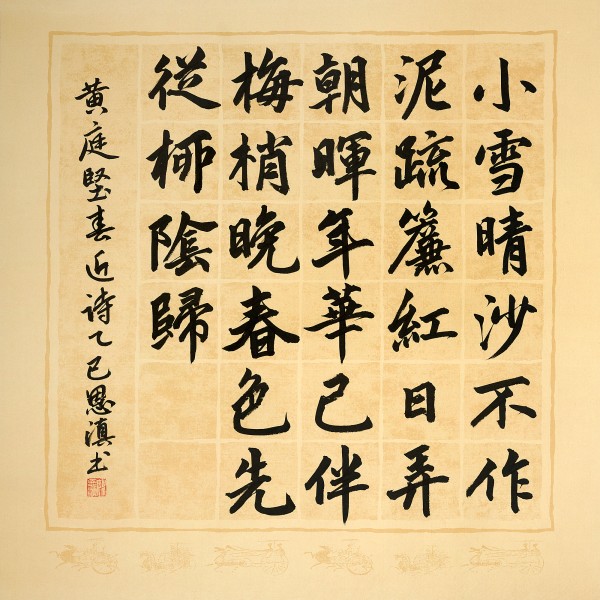 小雪晴沙不作
泥疏簾紅日弄
朝暉年華已伴
梅梢晚春色先
從柳陰歸
黄庭堅春近詩乙巳恩滇书